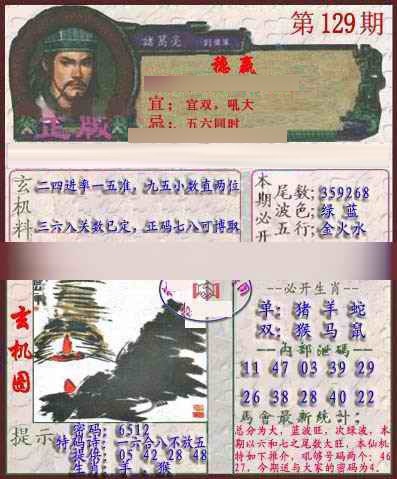 第129期
諸葛亮
稳赢
宜：宜双，吼大
忌：五六同时
正版
玄机料
二四进率一五准，九五小数直两位
三六八关数已定，正码七八可博取
本期必开
尾数：359268
波色：绿 蓝
五行：金火水
玄机图
必开生肖
单：猪 羊 蛇
双：猴 马 鼠
内部泄码
11 47 03 39 29
26 38 28 40 22
馬會最新統計：
总分为大，蓝波旺，次绿波，本
期以六和七之尾数大旺，本仙机
特如下推介，吼够号码两个：46
27，今期送与大家的密码为4．
提示
密码：6512
特码诗：一六合八不放五
提供：05 42 28 48
生肖：羊．猴